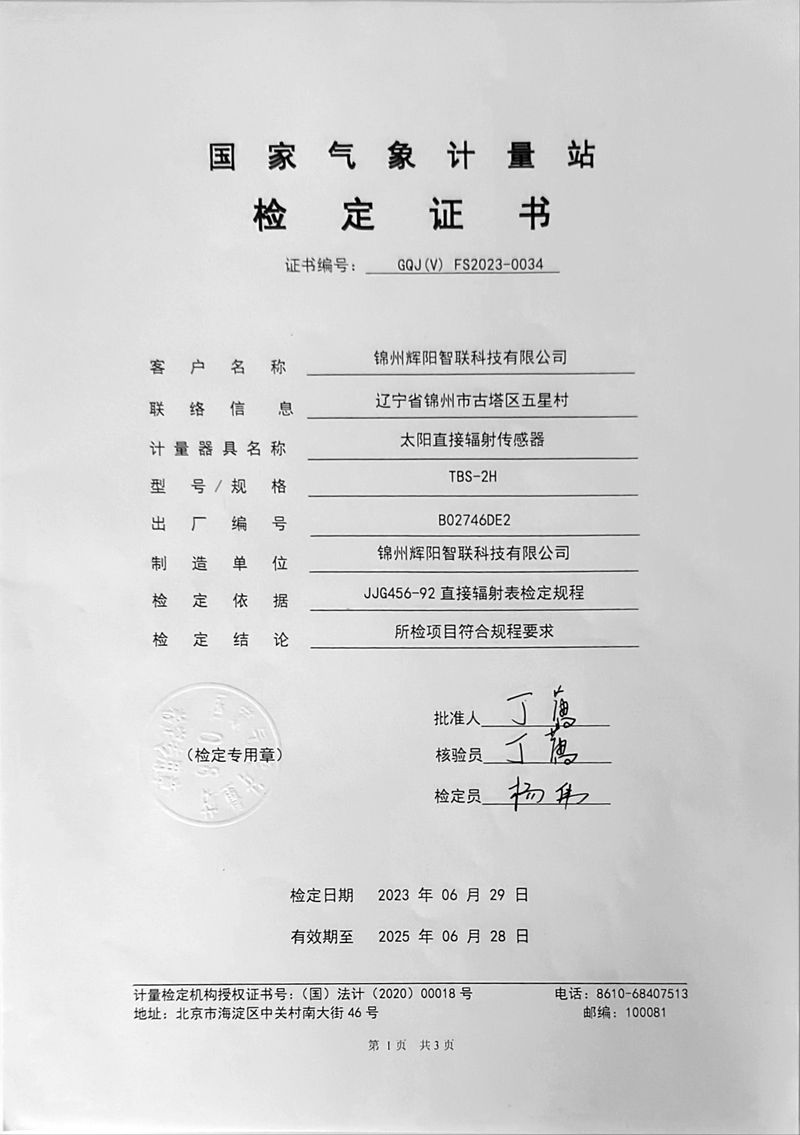 国家气象计量站
检定证书
证书编号： GQJ(V) FS2023-0034
客户名称 锦州辉阳智联科技有限公司
联络信息 辽宁省锦州市古塔区五星村
计量器具名称 太阳直接辐射传感器
型号/规格 TBS-2H
出厂编号 B02746DE2
制造单位 锦州辉阳智联科技有限公司
检定依据 JJG456-92 直接辐射表检定规程
检定结论 所检项目符合规程要求
批准人 丁
（检定专用章） 核验员 丁
检定员 杨伟
检定日期 2023 年 06 月 29 日
有效期至 2025 年 06 月 28 日
计量检定机构授权证书号：（国）法计（2020）00018 号 电话：8610-68407513
地址：北京市海淀区中关村南大街 46 号 邮编：100081
第 1 页 共 3 页